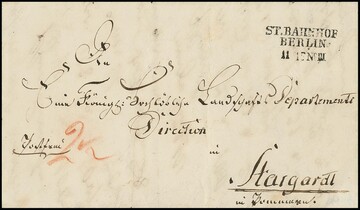 ST. BAHNHOF
BERLIN
11 12 N III
An
Eine Königl: Hochlöbliche Landschafts Departements
Direction
in
Stargardt
in Pommern.